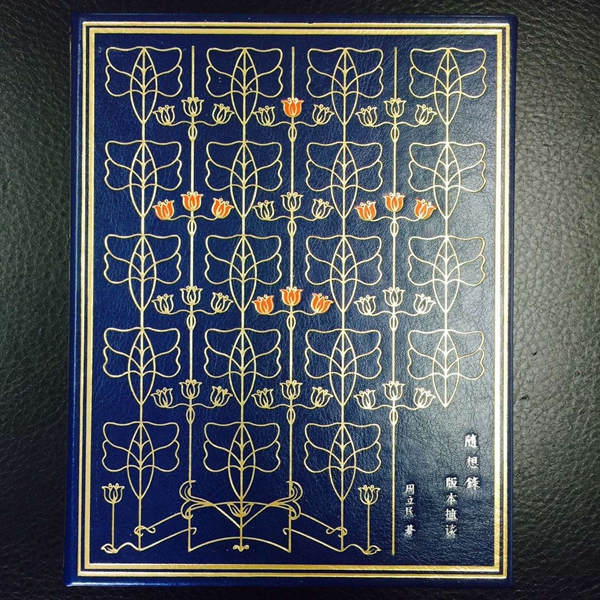 隨想錄
版本摭谈
周立民 著